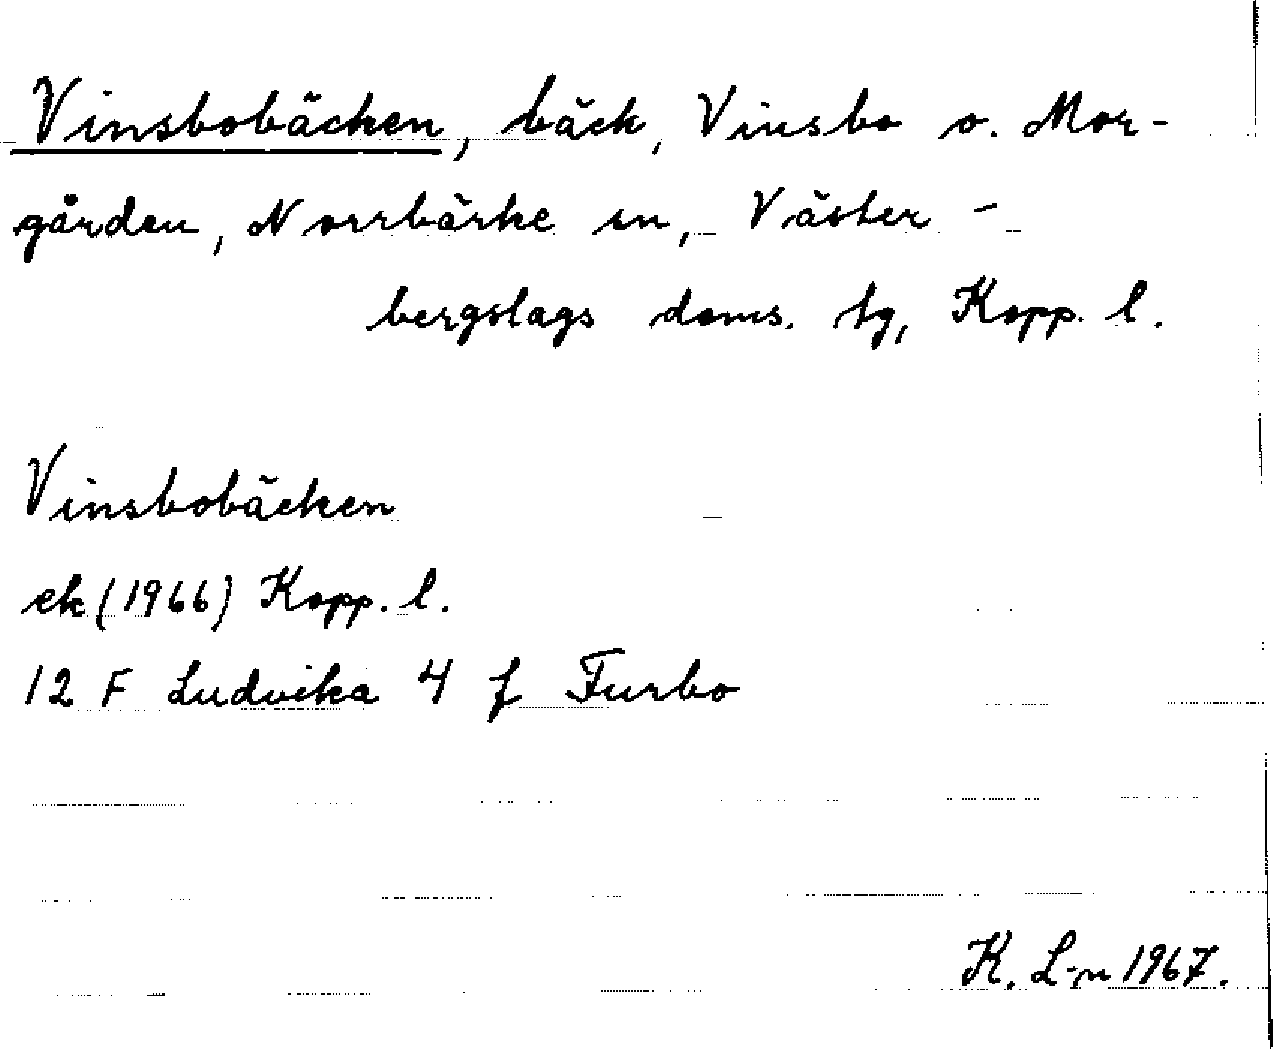 Vinsbobäcken, bäck, Vinsbo o. Mor-
gården, Norrbärke sn, Väster-
bergslags doms. tg, Kopp. l.
Vinsbobäcken
ek (1966) Kopp. l.
12 F Ludvika 4 f Furbo
K. L-n 1967.